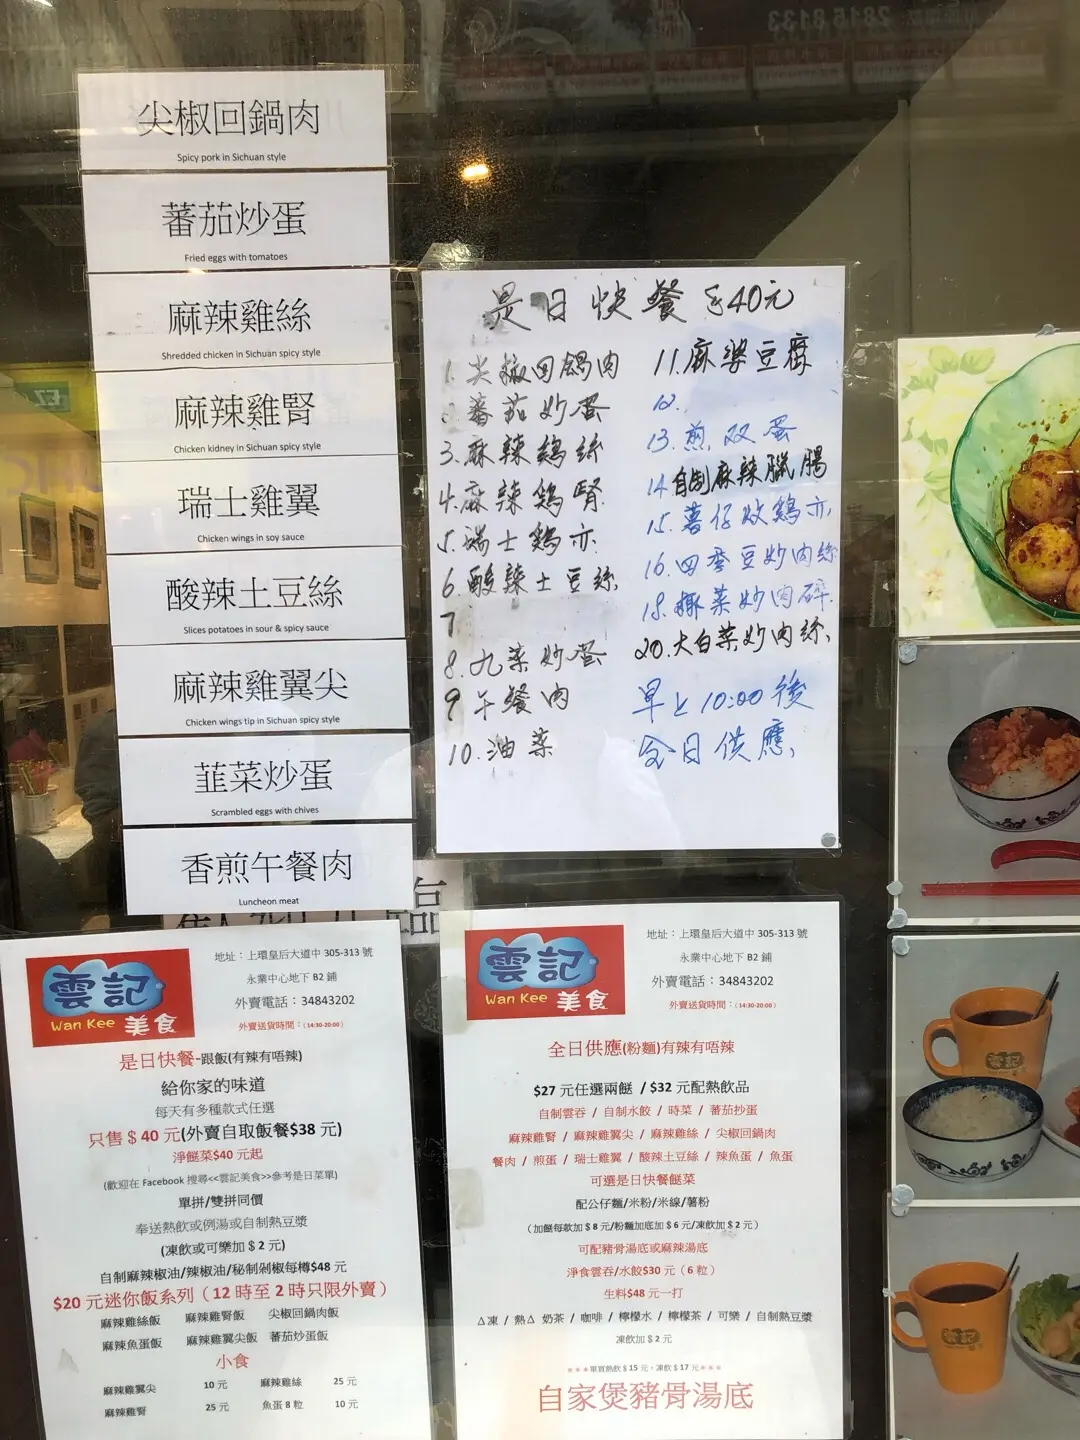 尖椒回鍋肉
Spicy pork in Sichuan style
蕃茄炒蛋
Fried eggs with tomatoes
麻辣雞絲
Shredded chicken in Sichuan spicy style
麻辣雞腎
Chicken kidney in Sichuan spicy style
瑞士雞翼
Chicken wings in soy sauce
酸辣土豆絲
Slices potatoes in sour & spicy sauce
麻辣雞翼尖
Chicken wings tip in Sichuan spicy style
韮菜炒蛋
Scrambled eggs with chives
香煎午餐肉
Luncheon meat
是日快餐 $40元
1.尖椒回鍋肉
蕃茄炒蛋
3.麻辣鷄絲
4.麻辣鷄腎
5.瑞士鷄亦
6.酸辣土豆絲
7
8.九菜炒蛋
9午餐肉
10.油菜
11.麻婆豆腐
12.
13.煎双蛋
14自制麻辣臘腸
15.薯仔炆鷄亦
16.四季豆炒肉絲
18.榨菜炒肉碎
20.大白菜炒肉絲
早上10:00後
全日供應
雲記
Wan Kee 美食
地址：上環皇后大道中 305-313 號
永業中心地下 B2 鋪
外賣電話：34843202
外賣送貨時間：（14:30-20:00）
是日快餐-跟飯(有辣有唔辣)
給你家的味道
每天有多種款式任選
只售＄40 元(外賣自取飯餐$38 元)
淨餸菜$40 元起
(歡迎在 Facebook 搜尋<<雲記美食>>參考是日菜單)
單拼/雙拼同價
奉送熱飲或例湯或自制熱豆漿
(凍飲或可樂加＄2 元)
自制麻辣椒油/辣椒油/秘制剁椒每樽$48 元
$20 元迷你飯系列（12 時至 2 時只限外賣）
麻辣雞絲飯 麻辣雞腎飯 尖椒回鍋肉飯
麻辣魚蛋飯 麻辣雞翼尖飯 蕃茄炒蛋飯
小食
麻辣雞翼尖 10 元 麻辣雞絲 25 元
麻辣雞腎 25 元 魚蛋 8 粒 10 元
雲記
Wan Kee 美食
地址：上環皇后大道中 305-313 號
永業中心地下 B2 鋪
外賣電話：34843202
外賣送貨時間：（14:30-20:00）
全日供應(粉麵)有辣有唔辣
$27 元任選兩餸 / $32 元配熱飲品
自制雲吞 / 自制水餃 / 時菜 / 蕃茄抄蛋
麻辣雞腎 / 麻辣雞翼尖 / 麻辣雞絲 / 尖椒回鍋肉
餐肉 / 煎蛋 / 瑞士雞翼 / 酸辣土豆絲 / 辣魚蛋 / 魚蛋
可選是日快餐餸菜
配公仔麵/米粉/米線/薯粉
（加餸每款加＄8 元/粉麵加底加＄6 元/凍飲加＄2 元）
可配豬骨湯底或麻辣湯底
淨食雲吞/水餃$30 元（6 粒）
生料$48 元一打
△凍 / 熱△ 奶茶 / 咖啡 / 檸檬水 / 檸檬茶 / 可樂 / 自制熱豆漿
凍飲加＄2 元
***單買熱飲＄15 元，凍飲＄17 元***
自家煲豬骨湯底
雲記
雲記